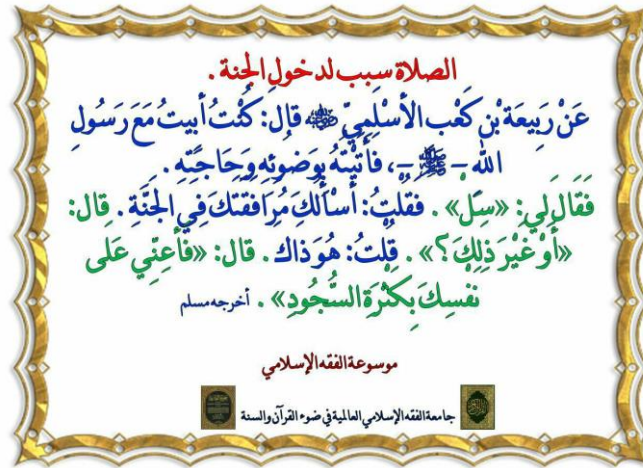 الصلاة سبب لدخول الجنة .
عَنْ رَبِيعَة بْن كَعْب الأَسْلَمِيّ رضي الله عنه قال: كُنْتُ أبيتُ مَعَ رَسُولِ
الله - ﷺ -، فَأَتَيْتُهُ بِوَضُوئِهِ وَحَاجَتِهِ .
فَقَالَ لِي: «سَلْ» . فقلتُ: أسْألُكَ مُرَافَقَتَكَ فِي الجَنَّةِ . قال:
«أَوْ غَيْرَ ذَلِكَ؟» . قلتُ: هُوَ ذَاكَ . قال: «فَأَعِنِّي عَلَى
نَفْسِكَ بِكَثْرَةِ السُّجُودِ» . أخرجه مسلم
موسوعة الفقه الإسلامي
جامعة الفقه الإسلامي العالمية في ضوء القرآن والسنة